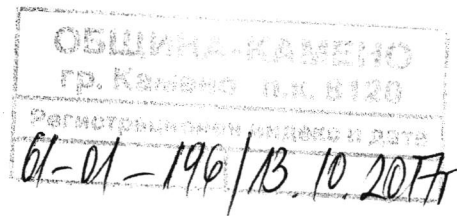 ОБЩИНА-КАМЕНО
гр. Камено п.к. 8120
Регистрационен индекс и дата
61-01-196/13.10.2017г